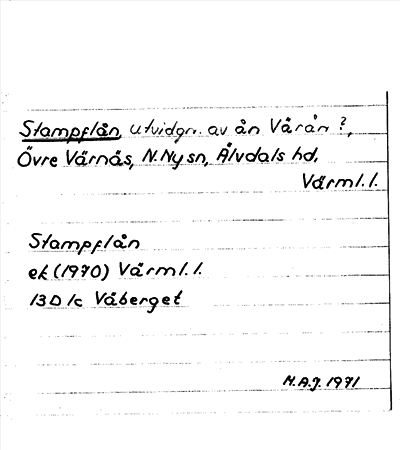 Stampflån, utvidgn. av ån Vårån?,
Övre Värnäs, N. Ny sn, Älvdals hd,
Värml. l.
Stampflån
ek (1970) Värml. l.
13D 1c Våberget
M.A.J. 1971